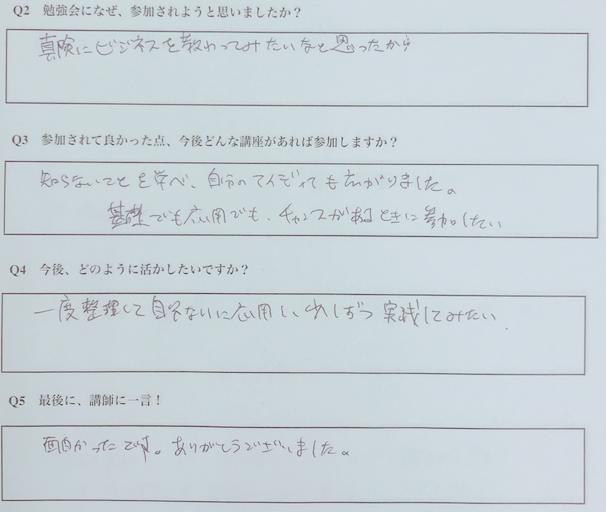 Q2 勉強会になぜ、参加されようと思いましたか？
真険にビジネスを教わってみたいなと思ったから
Q3 参加されて良かった点、今後どんな講座があれば参加しますか？
知らないことを学べ、自分のアイディアも広がりました。
基礎でも応用でも、チャンスがあるときに参加したい
Q4 今後、どのように活かしたいですか？
一度整理して自分なりに応用し、少しずつ実践してみたい.
Q5 最後に、講師に一言！
面白かったです。ありがとうございました。